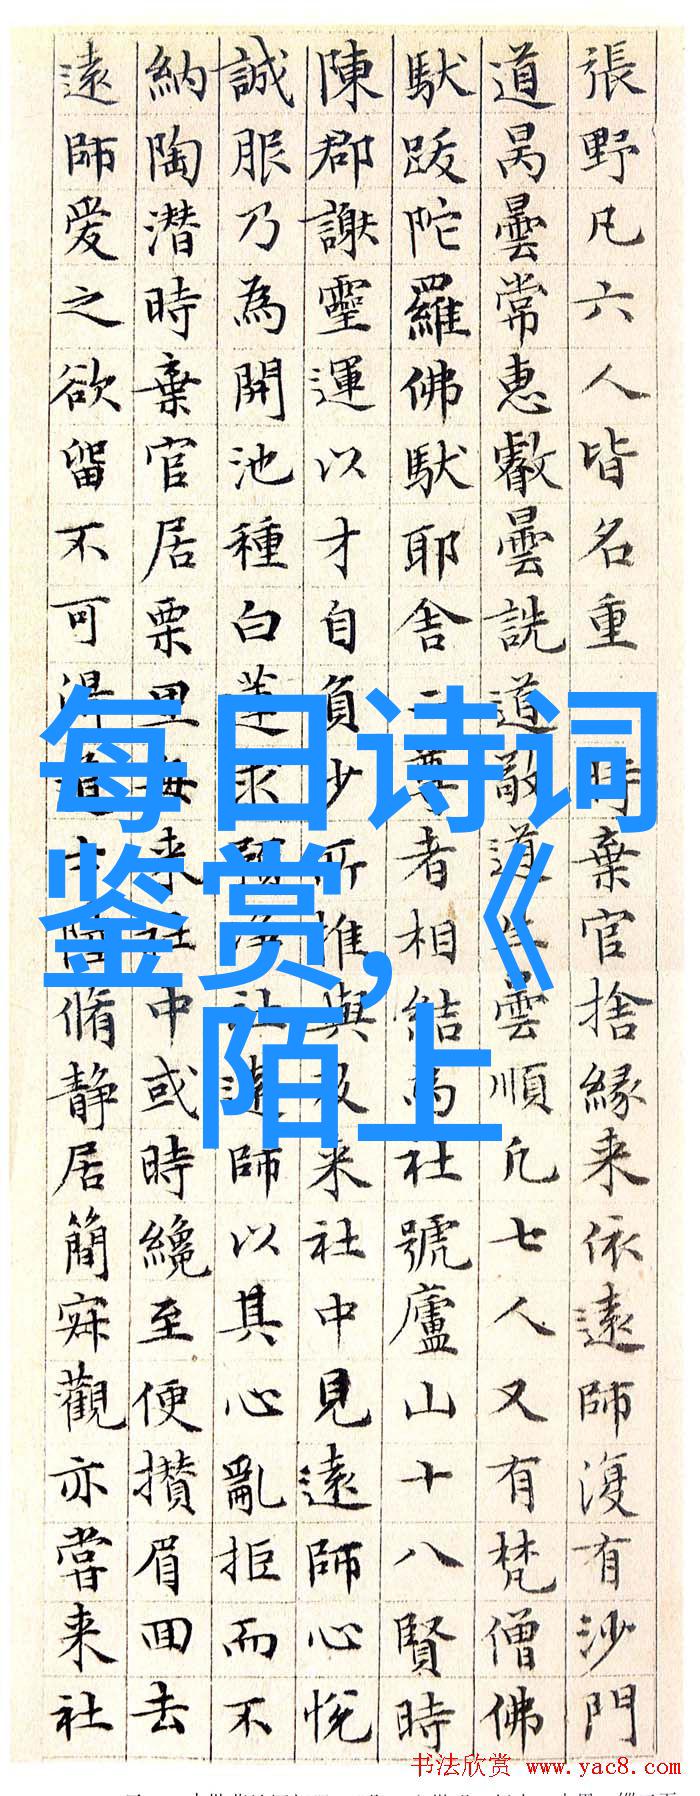 張野凡六人皆名重
時棄官捨緣来依遠師復有沙門
道昺曇常惠叡曇詵道敬道生曇順凡七人又有梵僧佛
馱跋陀羅佛馱耶舎二尊者相結為社號廬山十八賢時
陳郡謝靈運以才自負少所推與及来社中見遠師心悅
誠服乃為開池種白蓮求預淨社遠師以其心亂拒而不
納陶潛時棄官居栗里每来社中或時纔至便攢眉回去
遠師愛之欲留不可得道士陸脩静居簡寂觀亦嘗来社
每日诗词
鉴赏,《
陌上
书法欣赏 www.yac8.com